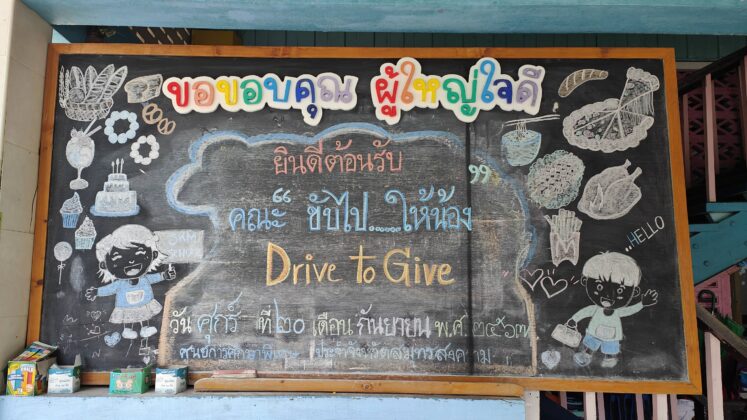 ขอขอบคุณ ผู้ใหญ่ใจดี
ยินดีต้อนรับ
คณะ " ขับไป.....ให้น้อง "
Drive to Give
วัน ศุกร์ ที่ ๒๐ เดือน กันยายน พ.ศ. ๒๕๖๗
ศูนย์การศึกษาพิเศษ ประจำจังหวัดสมุทรสงคราม
HELLO